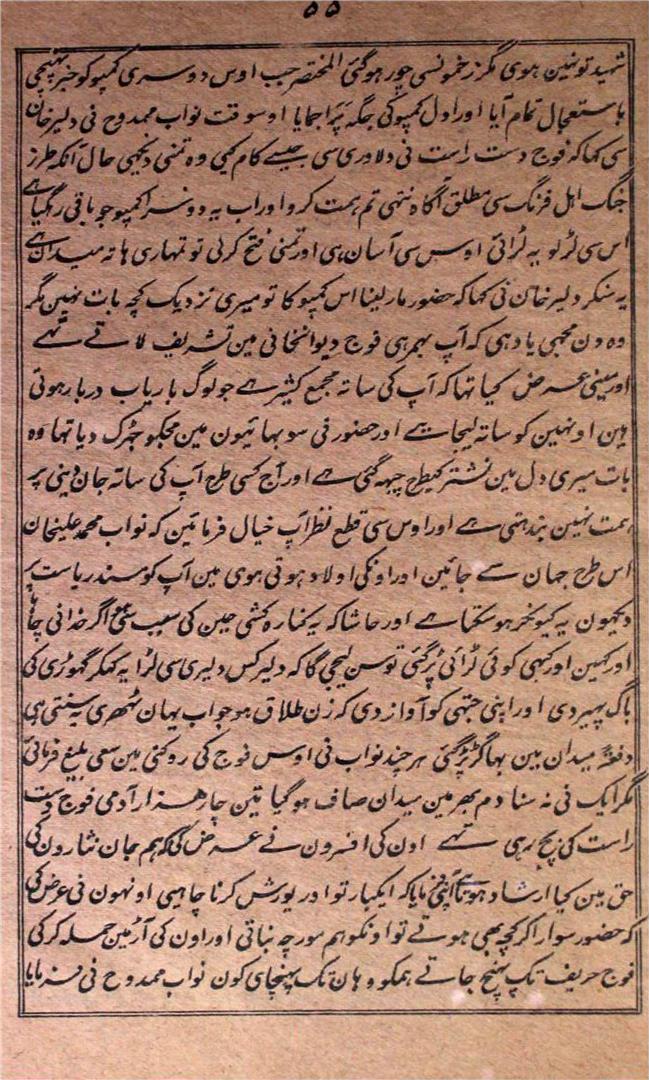 ۵۵
شہید تو نہین ہوی مگر زخمونسی چور ہوگئی المختصر جب اوس دوسری کمپو کو خبر پہنچی
باستعجال تمام آیا اور اول کمپو کی جگہ پَرا جمایا اوسوقت نواب ممدوح نی دلیر خان
سی کہا کہ فوج دست راست نی دلاوری سی جیسے کام کیی وہ تمنی دیکھیی حال آنکہ طرز
جنگ اہل فرنگ سی مطلق آگاہ نتہی تم ہمت کرو اور اب یہ دوسرا کمپو جو باقی رہگیا ہے
اس سی لڑ لو یہ لڑائی اوس سی آسان ہی اور تمنی فتح کرلی تو تمہاری ہاتہ میدان ہے
یہ سنکر دلیر خان نی کہا کہ حضور مارلینا اس کمپو کا تو میری نزدیک کچہ بات نہین مگر
وہ دن مجہی یاد ہی کہ آپ بہمرہی فوج دیوانخانی مین تشریف لاتے تہے
اور مینی عرض کیا تہا کہ آپ کی ساتہ مجمع کثیر ہے جو لوگ باریاب دربار ہوتی
ہین اونہین کو ساتہ لیجائے اور حضور نی سو بہائیون مین مجکو جہڑک دیا تہا وہ
بات میری دل مین نشتر کیطرح چبہہ گئی ہے اور آج کسی طرح آپ کی ساتہ جان دینی پر
ہمت نہین بندہتی ہے اور اوس سی قطع نظر آپ خیال فرمائین کہ نواب محمد علیخان
اس طرح جہان سے جائین اور اونکی اولاد ہوتی ہوی مین آپ کو مسند ریاست پر
دیکہون یہ کیونکر ہوسکتا ہے اور حاشا کہ یہ کنارہ کشی جبن کی سبب اگر خدا نی چاہا
اور کہین اور کبہی کوئی لڑائی پڑگئی تو سن لیجی گا کہ دلیر کس دلیری سی لڑا یہ کہکر گہوڑی کی
باگ پہیر دی اور اپنی جتہی کو آواز دی کہ زن طلاق ہو جو اب یہان ٹہری یہ سنتی ہی
دفعۃً میدان مین بہاگڑ پڑگئی ہر چند نواب نی اوس فوج کی روکنی مین سعی بلیغ فرمائی
مگر ایک نی نہ سنا دم بہر مین میدان صاف ہوگیا تین چار ہزار آدمی فوج دست
راست کی بچ رہی تہے اون کی افسرون نے عرض کی کہ ہم جان نثارون کی
حق مین کیا ارشاد ہوتا فرمایا کہ ایکبار تو اور یورش کرنا چاہیی اونہون نی عرض کی
کہ حضور سوار اگر کچہ بہی ہوتے تو اونکو ہم مورچہ بناتی اور اون کی آڑ مین حملہ کرکی
فوج حریف تک پہنچ جاتے ہمکو وہان تک پہنچای کون نواب ممدوح نی فرمایا